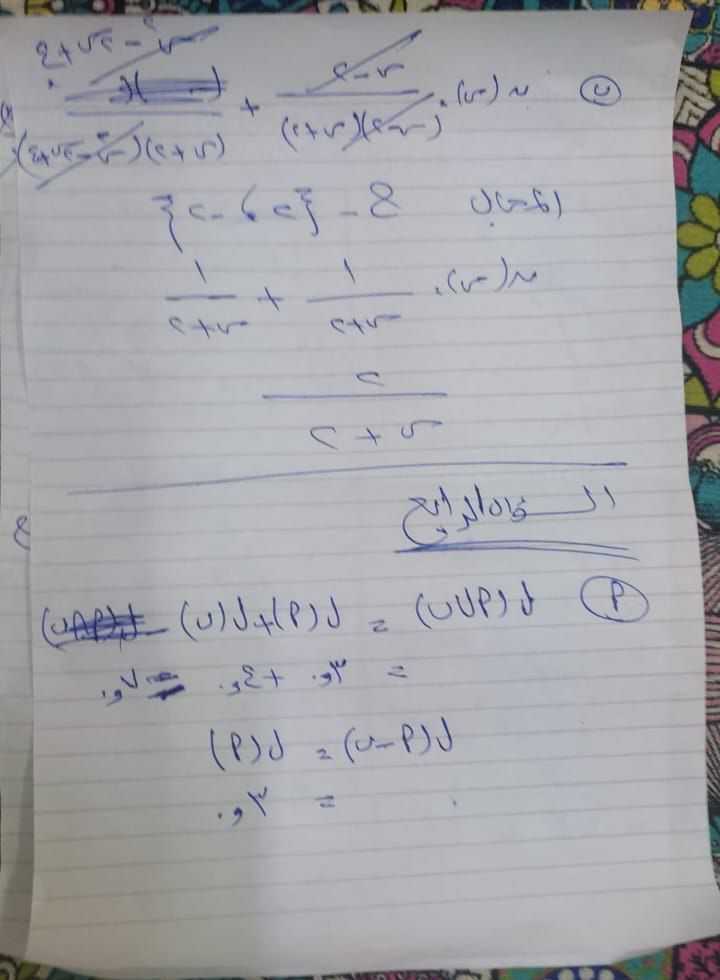 ب ن(س) = (س-٢)/((س-٢)(س+٢)) + (س²-٢س+٤)/((س+٢)(س²-٢س+٤))
المجال = ح - {٢، -٢}
ن(س) = ١/(س+٢) + ١/(س+٢)
٢/(س+٢)
السؤال الرابع
أ ل(أ∪ب) = ل(أ)+ل(ب)
= ٣,٠ + ٤,٠ = ٧,٠
ل(أ-ب) = ل(أ)
= ٣,٠